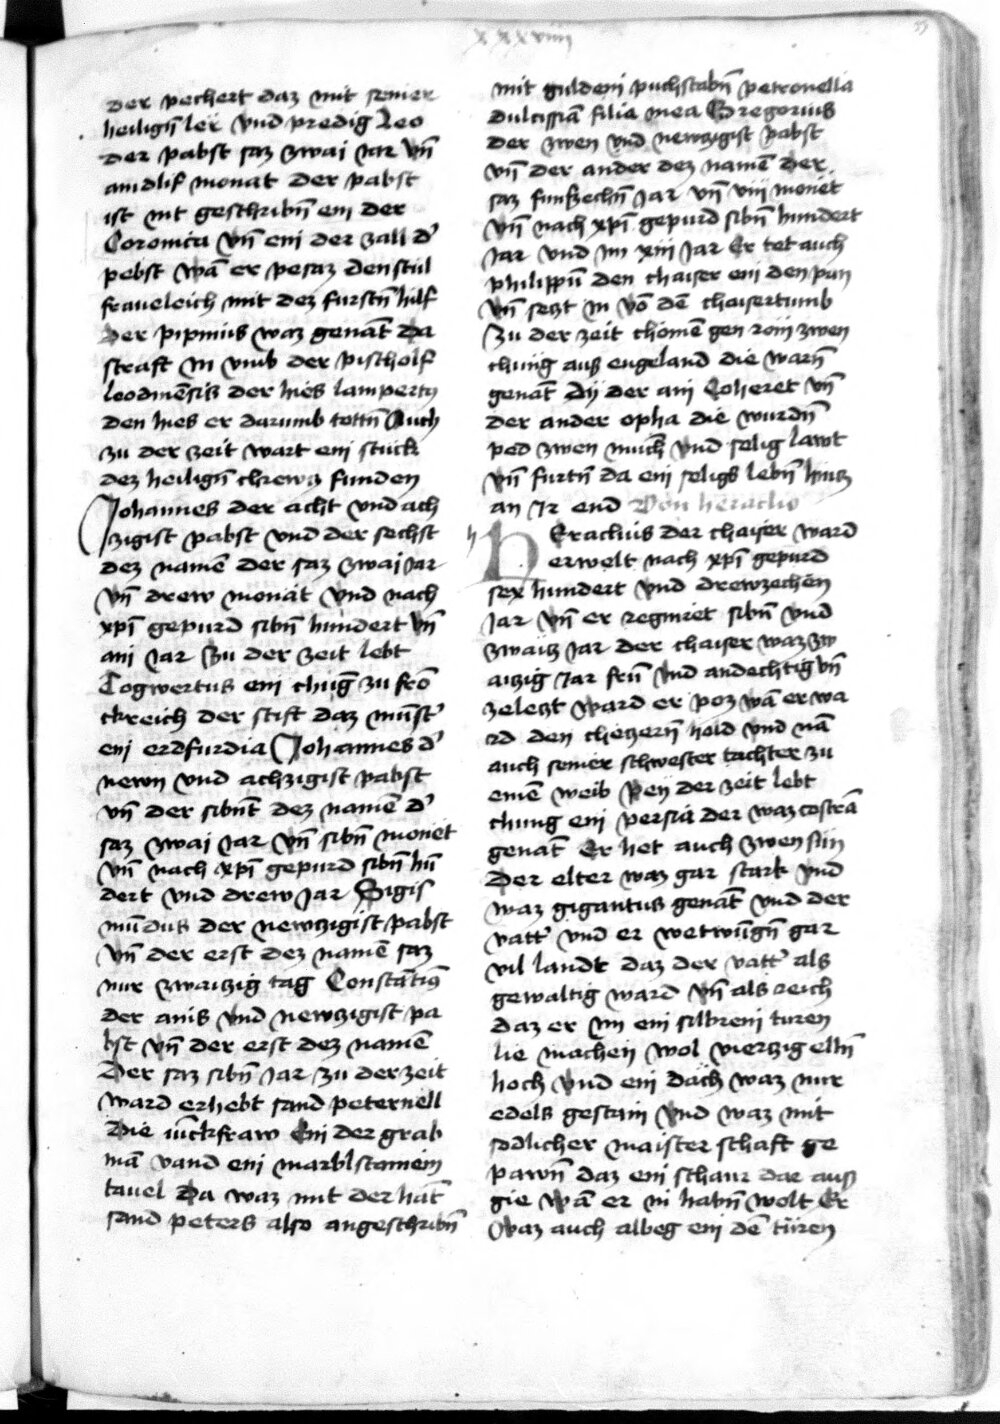 xxxviiij
der pechert daz mit seiner
heiligñ ler vnd predig Leo
der pabst saz zwai Jar vñ
aindlif monat der pabst
ist nit geschribñ ein der
Coronica vñ ein der zall dʼ
pebst wā er pesaz den stul
fraueleich mit dez furstñ hilf
der pipinus waz genāt da
straft in vmb der pischolf
leodinēsis der hies lampertus
den hies er darumb tottñ Auch
zu der zeit wart ein stuck
dez heiligñ chrewz funden
Johannes der acht vnd ach
zigist pabst vnd der sechst
dez namē der saz zwai Jar
vñ drew monat vnd nach
xpī gepurd sibñ hundert vñ
ain Jar Zu der zeit lebt
Cogwertus ein chūg zu frō
ckreich der stift daz mūstʼ
ein erdfurdia Johannes dʼ
newn vnd achzigist pabst
vñ der sibnt dez namē dʼ
saz zwai Jar vñ sibñ monet
vñ nach xpī gepurd sibñ hū
dert vnd drew Jar Sigis
mūdus der newzigist pabst
vñ der erst dez namē saz
nur zwaizig tag Constātius
der anis vnd newzigist pa
bst vñ der erst dez namē
Der saz sibñ Jar zu der zeit
ward erhebt sand peternell
die iūckfraw Ein der grab
mā vand ein marblstainein
tauel Da waz mit der hāt
sand peters also angeschribñ
mit guldein puchstabñ petronella
dulcissīa filia mea Gregorius
der zwen vnd newzigist pabst
vñ der ander dez namē der
saz funfzechñ Jar vñ viii monet
vñ nach xpī gepurd sibñ hundert
Jar vnd im xiii Jar Er tet auch
philippū den chaiser ein den pan
vñ sezt in vō dē chaisertumb
Zu der zeit chomē gen rom zwen
chung aus engeland die warñ
genāt dy der ain Coheret vñ
der ander opha die wurdñ
ped zwen much vnd selig lawt
vñ furtñ da ein seligs lebñ hincz
an Ir end Von heraclio
h
HEraclius der chaiser ward
erwelt nach xpī gepurd
sex hundert vnd drewzechen
Jar vñ er regniret sibñ vnd
zwaizg Jar der chaiser waz zw
aizig Jar frū vnd andechtig vñ
zeleczt ward er poz wā er wa
rd den checzerñ hold vnd nā
auch seiner schwester tachter zu
einē weib Pey der zeit lebt
chung ein persia der waz cosdra
genāt Er het auch zwen sün
Der elter waz gar stark vnd
waz gigantus genāt vnd der
vattʼ vnd er wetwūgñ gar
vil landt daz der vattʼ als
gewaltig ward vñ als reich
daz er im ein silbrein turen
lie machen wol vierzig elñ
hoch vnd ein dach waz nur
edels gestain vnd waz mit
sodlicher maister schaft ge
pawñ daz ein schaur dar aus
gie wā er in habñ wolt Er
waz auch albeg ein dē türen